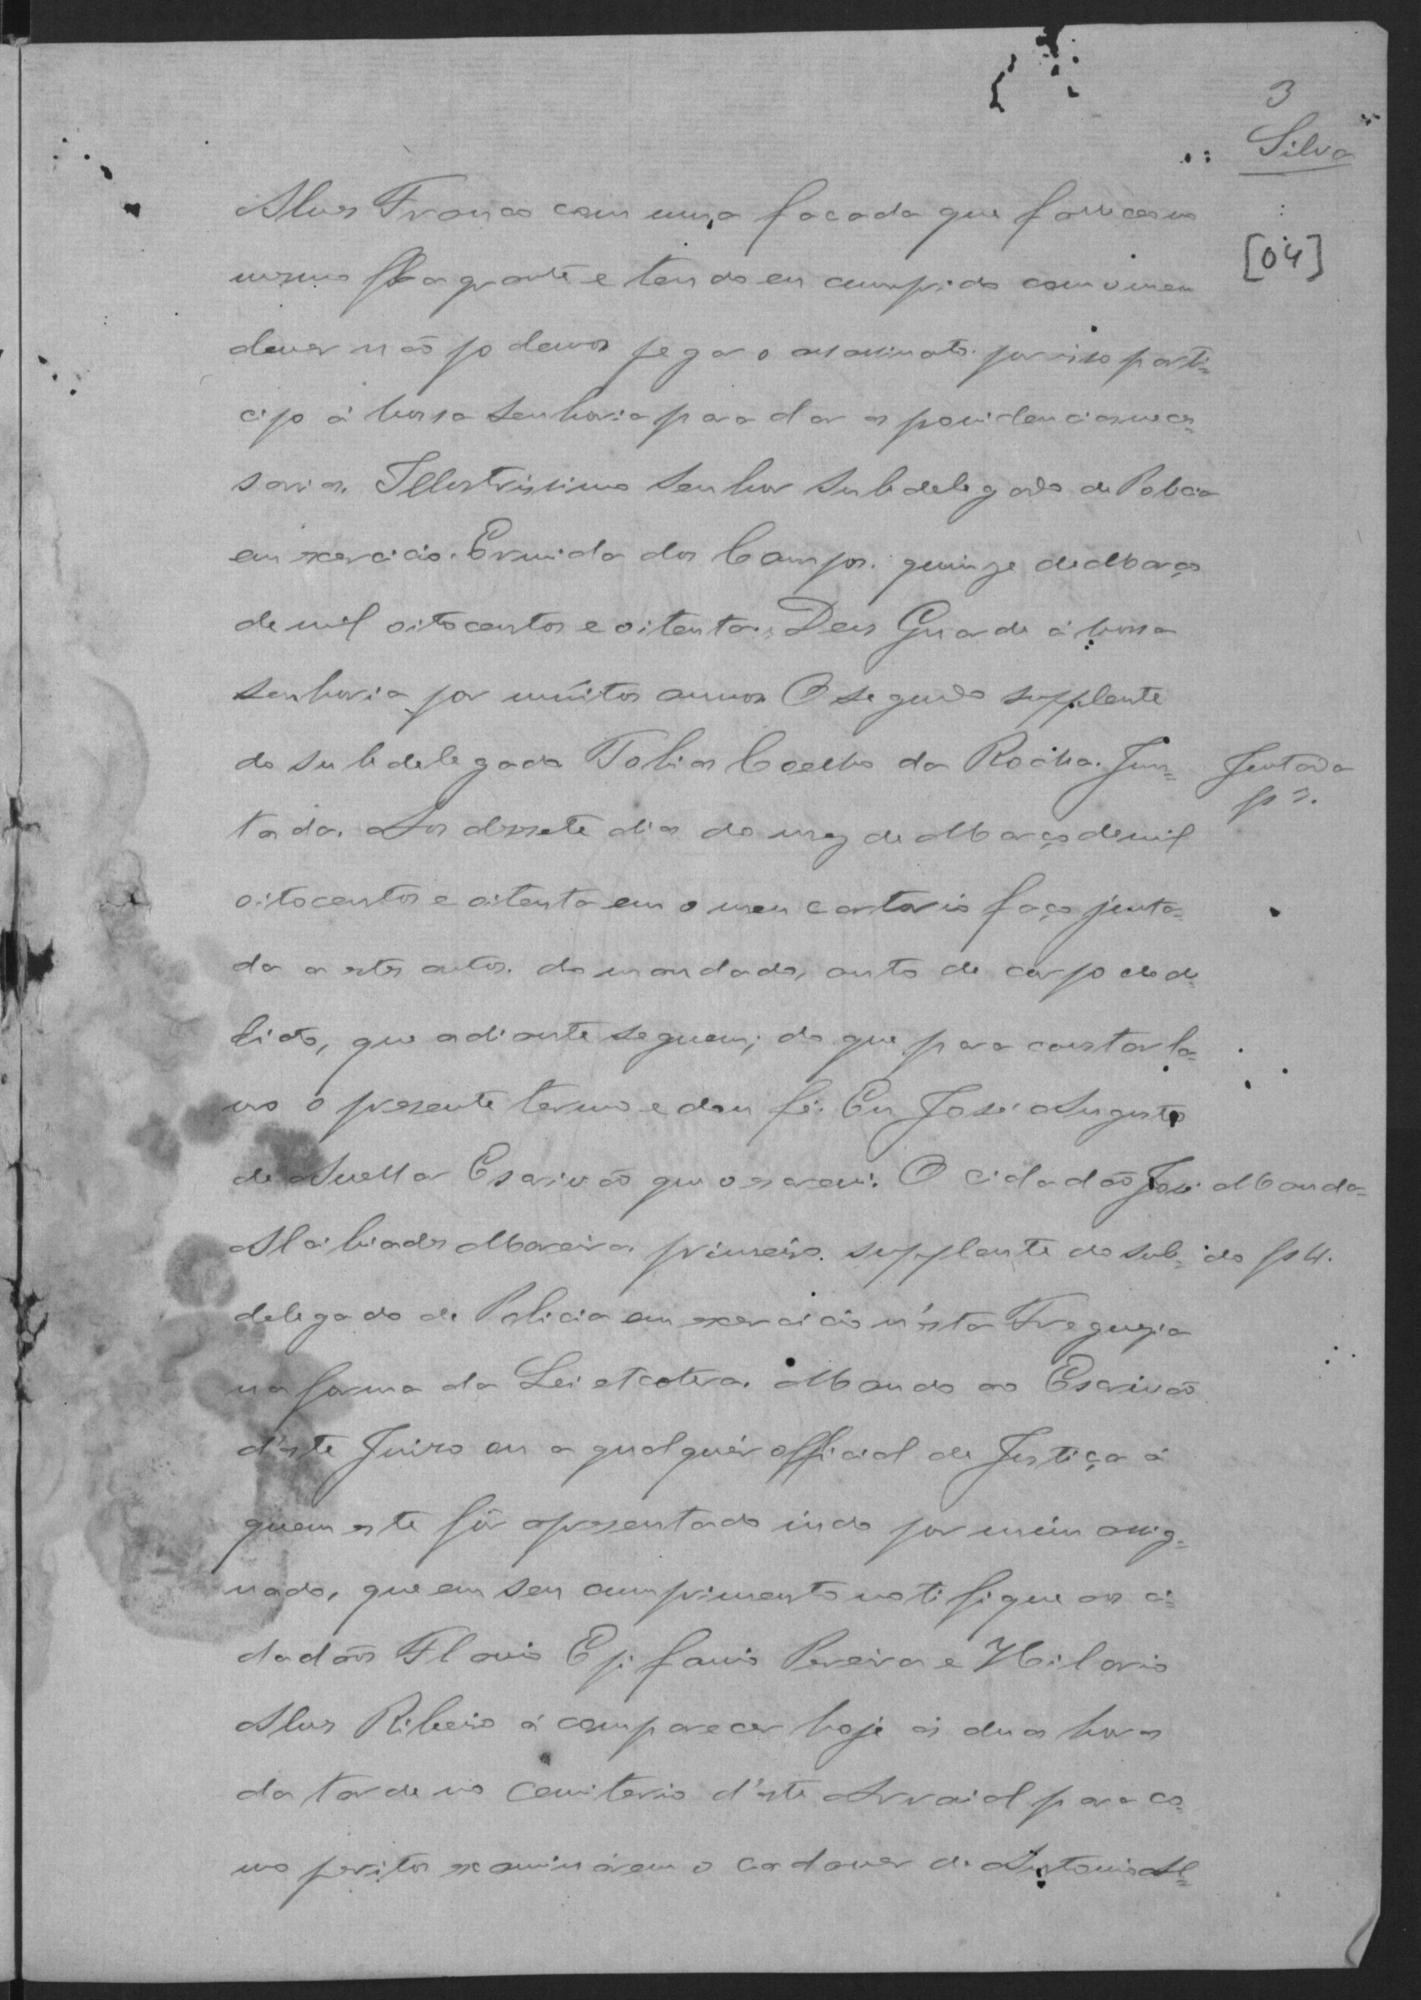 3
Silva
[04]
Alves Franco com uma facada que falleceu no
mesmo flagrante e tendo eu cumprido com o meu
dever não podemos pegar o assassinato por isso parti=
cipo á Vossa Senhoria para dar as providencias neces=
sarias. Illustrissimo Senhor Subdelegado de Policia
em exercicio. Ermida dos Campos. quinze de Março
de mil oitocentos e oitenta. Deus Guarde á Vossa
Senhoria por muitos annos O segundo supplente
do subdelegado Tobias Coelho da Rocha. Jun=
Juntada
fs 3.
tada. Aos desesete dias do mez de Março de mil
oitocentos e oitenta em o meu cartorio faço junta=
da a estes autos. do mandado, auto de corpo de de=
licto, que adiante seguem; do que para constar la=
vro o presente termo e dou fé. Eu José Augusto
de Avellar Escrivão que o escrevi. O cidadão José
Manda=
Alcibiades Moreira primeiro supplente do sub=
do fs 4.
delegado de Policia em exercicio n'esta Freguezia
na forma da Lei etcetera. Mando ao Escrivão
d'este Juizo ou a qualquér official de Justiça á
quem este fôr apresentado indo por mim assig=
nado, que em seu cumprimento notifique aos ci=
dadãos Flavio Epifanio Pereira e Hilario
Alves Ribeiro á comparecer hoje ás duas horas
da tarde no Cemiterio d'este Arraial para co=
mo peritos examinárem o cadaver de Antonio Al=